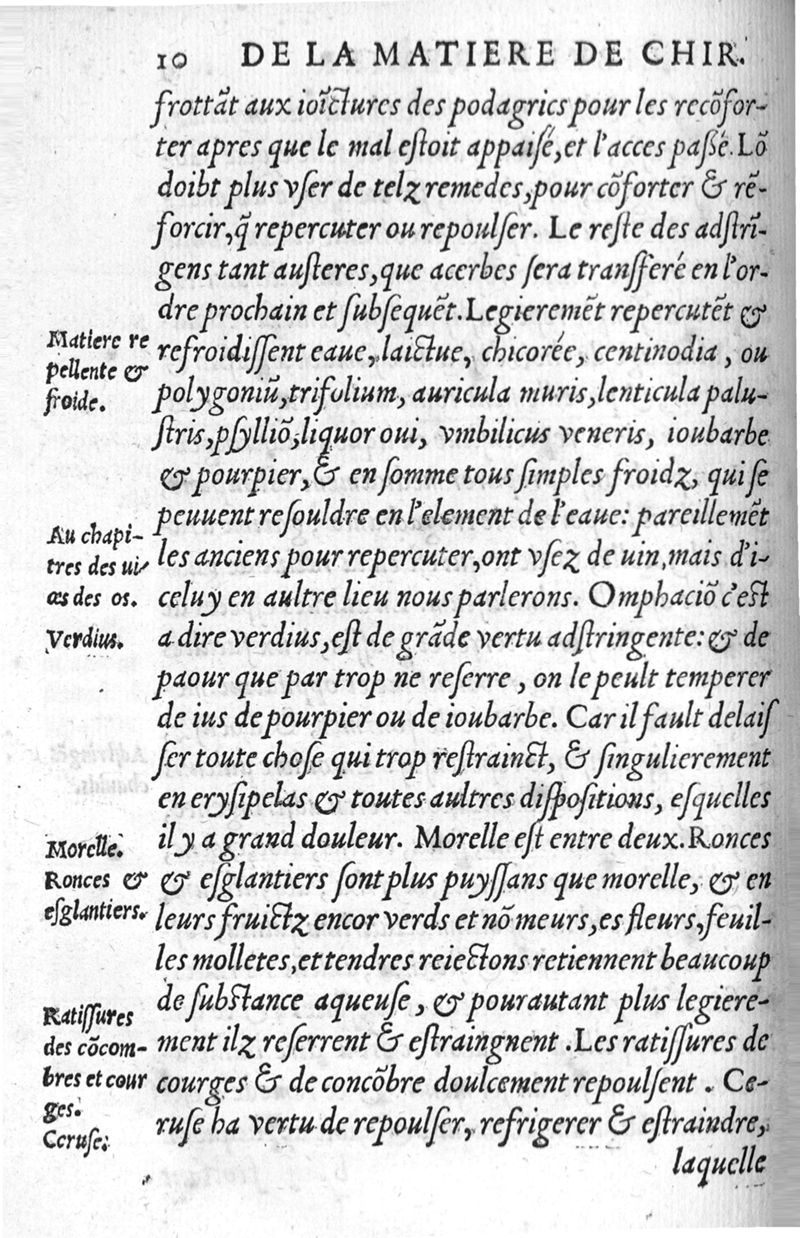 10 DE LA MATIERE DE CHIR.
frottãt aux ioĩctures des podagrics pour les recõfor-
ter apres que le mal eſtoit appaiſé, et l'acces paßé. Lõ
doibt plus vſer de telz remedes, pour cõforter & rẽ-
forcir, q̃ repercuter ou repoulſer. Le reſte des adſtrĩ-
gens tant auſteres, que acerbes ſera tranſferé en l'or-
dre prochain et ſubſequẽt. Legieremẽt repercutẽt &
Matiere re
pellente &
froide.
refroidiſſent eaue, laictue, chicorée, centinodia, ou
polygoniũ, trifolium, auricula muris, lenticula palu-
ſtris, pſylliõ, liquor oui, vmbilicus veneris, ioubarbe
& pourpier, & en ſomme tous ſimples froidz, qui ſe
peuuent reſouldre en l'element de l'eaue: pareillemẽt
Au chapi-
tres des ui-
ces des os.
les anciens pour repercuter, ont vſez de uin, mais d'i-
celuy en aultre lieu nous parlerons. Omphaciõ c'eſt
Verdius.
a dire verdius, eſt de grãde vertu adſtringente: & de
paour que par trop ne reſerre, on le peult temperer
de ius de pourpier ou de ioubarbe. Car il fault delaiſ
ſer toute choſe qui trop reſtrainct, & ſingulierement
en eryſipelas & toutes aultres diſpoſitions, eſquelles
il y a grand douleur. Morelle eſt entre deux. Ronces
Morelle.
Ronces &
eſglantiers.
& eſglantiers ſont plus puyſſans que morelle, & en
leurs fruictz encor verds et nõ meurs, es fleurs, feuil-
les molletes, et tendres reiectons retiennent beaucoup
de ſubſtance aqueuſe, & pourautant plus legiere-
Ratiſſures
des cõcom-
bres et cour
ges.
ment ilz reſerrent & eſtraingnent. Les ratiſſures de
courges & de concõbre doulcement repoulſent. Ce-
Ceruſe.
ruſe ha vertu de repoulſer, refrigerer & eſtraindre,
laquelle